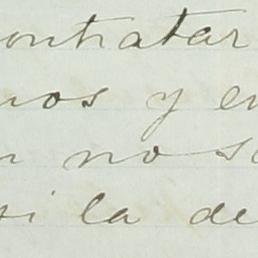 ontratar
nos y en
n nos
si la de